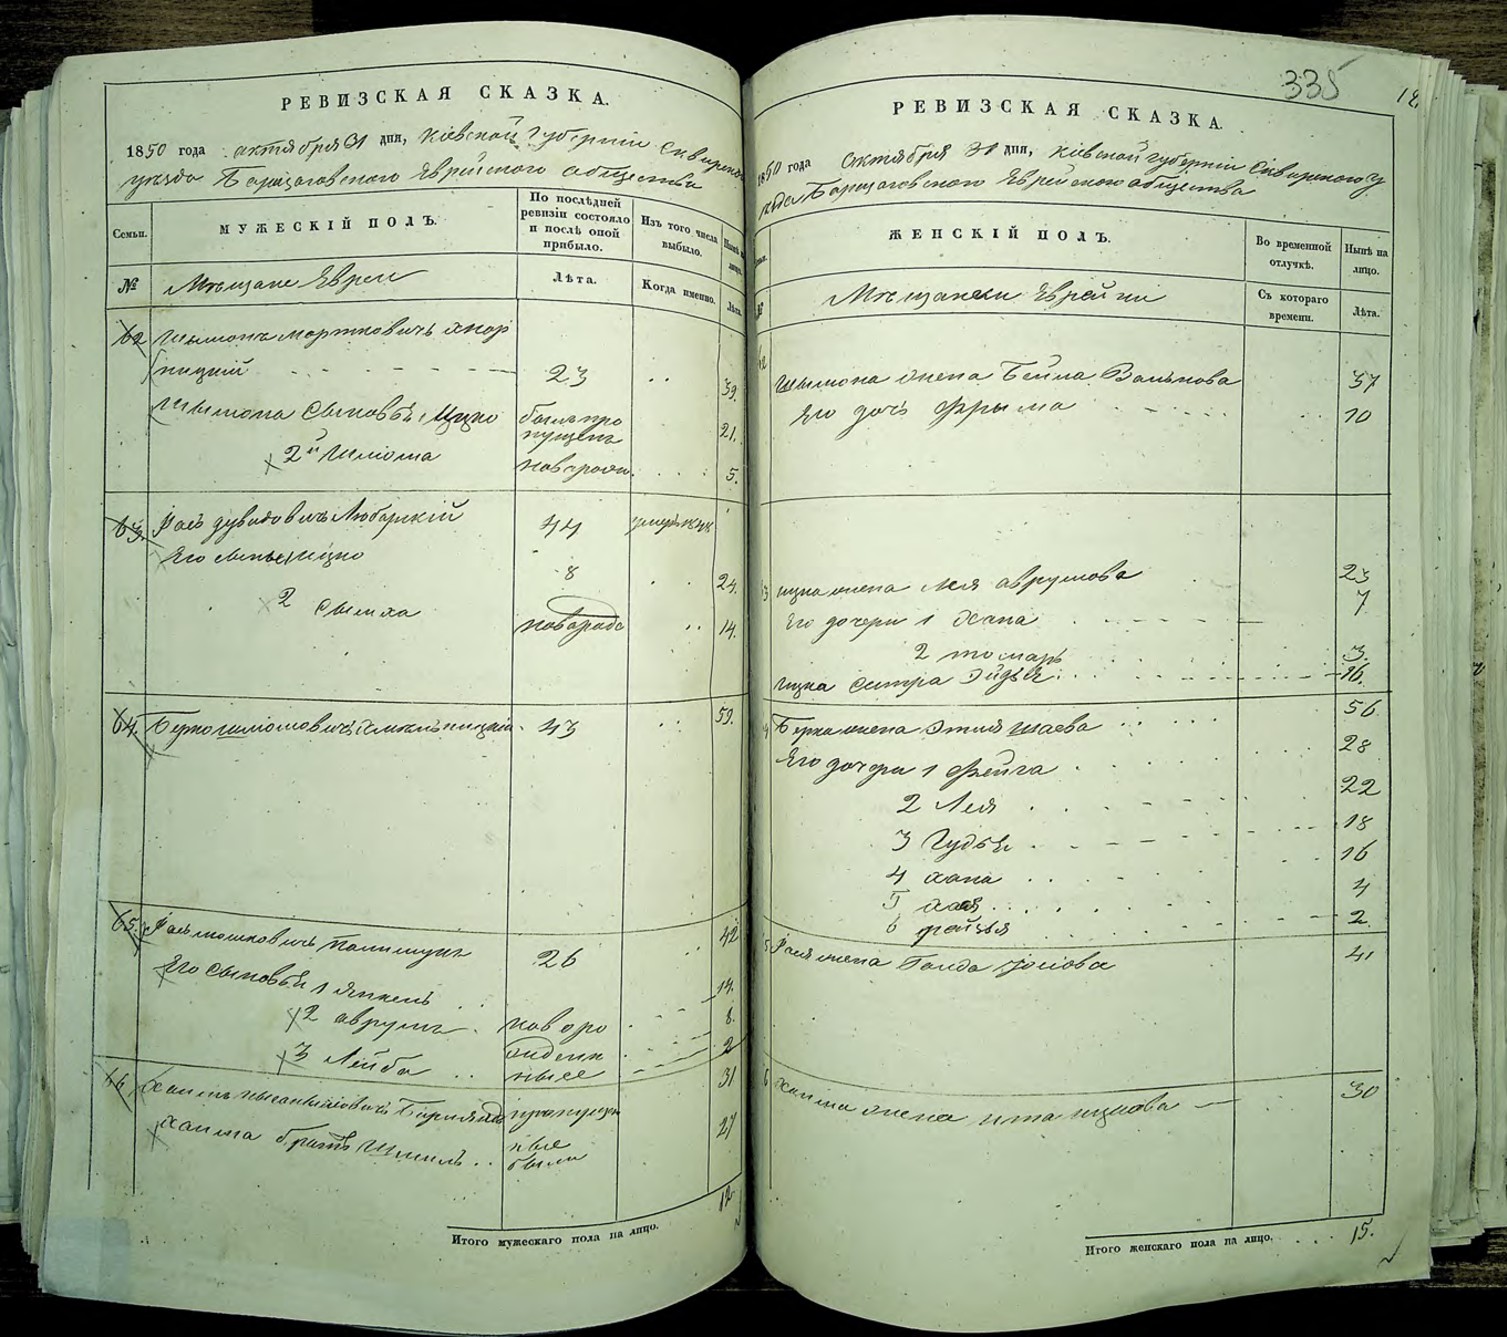 РЕВИЗСКАЯ СКАЗКА.
1850 года октября 31 дня, Кіевской Губерніи Сквирско
уезда Борщаговского Еврейского общества
Семьи.
МУЖЕСКІЙ ПОЛЪ.
По послѣдней ревизіи состояло и послѣ оной прибыло.
Изъ того числа выбыло.
Нынѣ на лицо.
№
Мѣщане Евреи
Лѣта.
Когда именно.
Лѣта.
62 Шымонъ Мортковичъ
ницкій 23 39.
Шымона сыновья, Ицко былъ про 21.
пущенъ
2й Шліома новорожд. 5.
63. Дувидовичъ Любарскій 44 умеръ
Его Ицко 8 24.
2 Сымха новорожд 14.
64. Берко Шліомовичъ Хмельницкій 43 59.
65. Мошковичъ Полищукъ 26 42
Его сыновья 1 Янкель 14.
2 Аврумъ новоро 8.
3 Лейба жденн 2
ные
66 Хаимъ 31
Хаима братъ Шмиль 27
ные
были
12
Итого мужескаго пола на лицо.
335
12
РЕВИЗСКАЯ СКАЗКА.
1850 года Октября 31 дня, Кіевской Губерніи Сквирского у
Борщаговского Еврейского общества
ЖЕНСКІЙ ПОЛЪ.
Во временной отлучкѣ.
Нынѣ на лицо.
№
Мѣщанки Еврейки
Съ котораго времени.
Лѣта.
Шымона жена Бейла Волькова 37
Его дочь Фрыма 10
Ицка жена Лея Аврумова 23
Его дочери 1 Хана 7
2 Томаръ 3.
Ицка сестра Эйдля 16.
Берка жена Этля Шаева 56
Его дочери 1 Фейга 28
2 Лея 22
3 Гудля 18
4 Хана 16
5 Хая 4
6 Рейзя 2
жена Голда Іосіова 41
Хаима жена Ита Ицкова 30
Итого женскаго пола на лицо. 15.